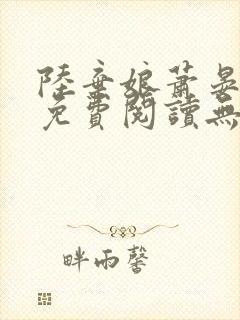 陸棄娘蕭晏
免費閱讀無
畔雨馨